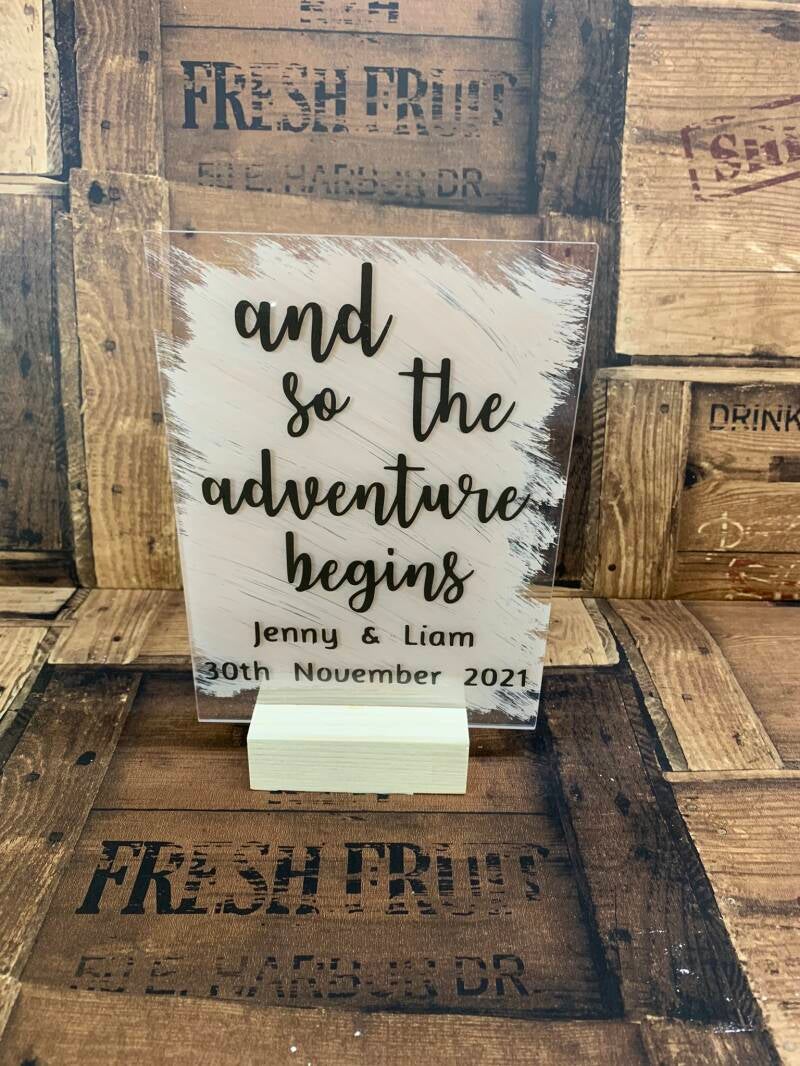 FRESH FRUIT
50 E. HARBOR DR.
DRINK
and
so the
adventure
begins
Jenny & Liam
30th November 2021
FRESH FRUIT
50 E. HARBOR DR.